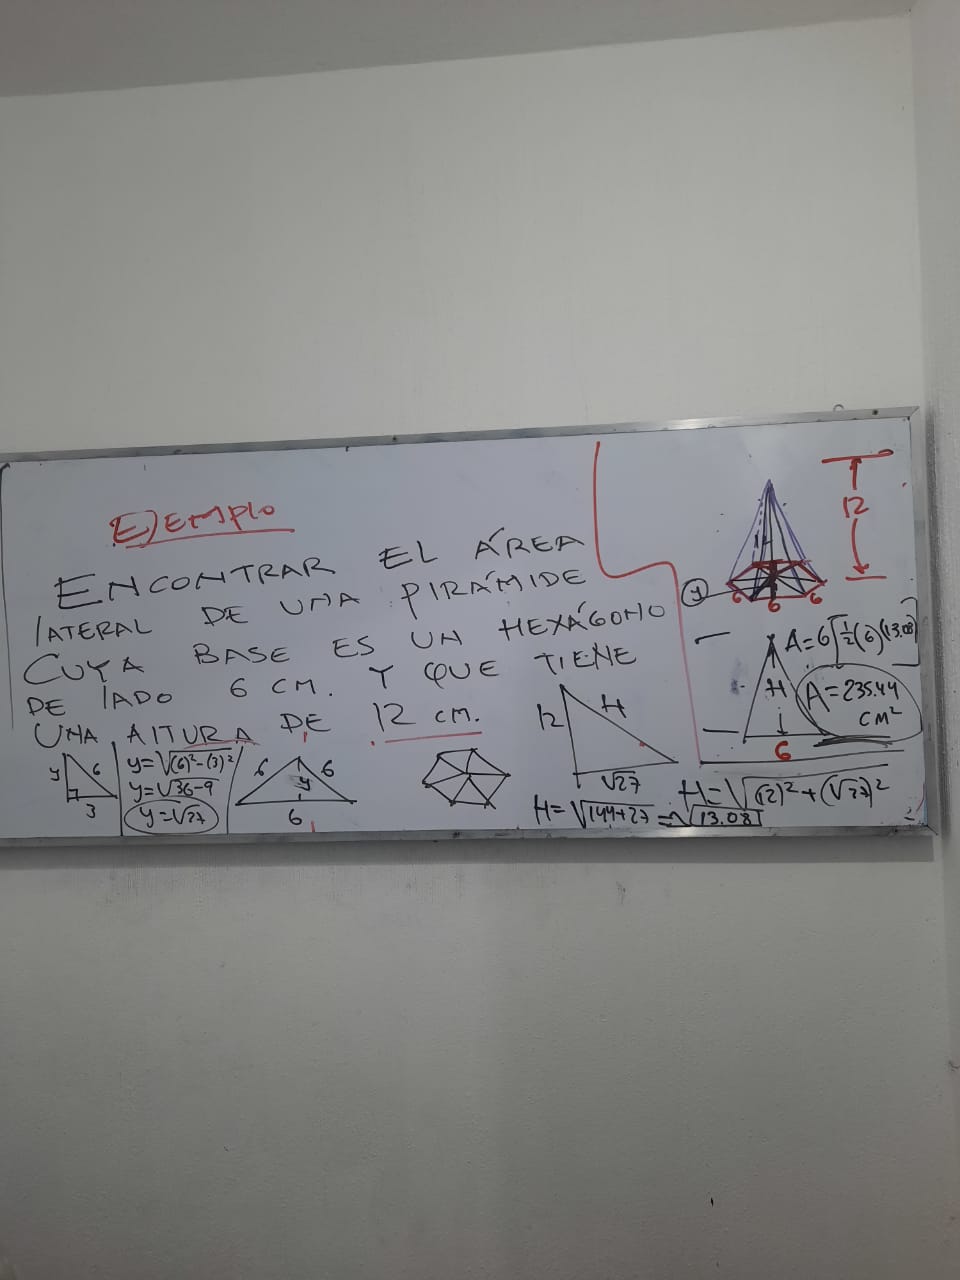 EJEMPLO
ENCONTRAR EL ÁREA
lATERAL DE UNA PIRÁMIDE
CUYA BASE ES UN HEXÁGONO
DE lADO 6 CM. Y QUE TIENE
UNA AlTURA DE 12 CM.
y 6
3
y=√(6)²-(3)²
y=√36-9
y=√27
6 6
y
6
12 H
√27
H=√144+27 = √13.08
H=√(12)²+(√27)²
12
y
6 6 6
A=6[½(6)(13.08)]
H
6
A=235.44
CM²